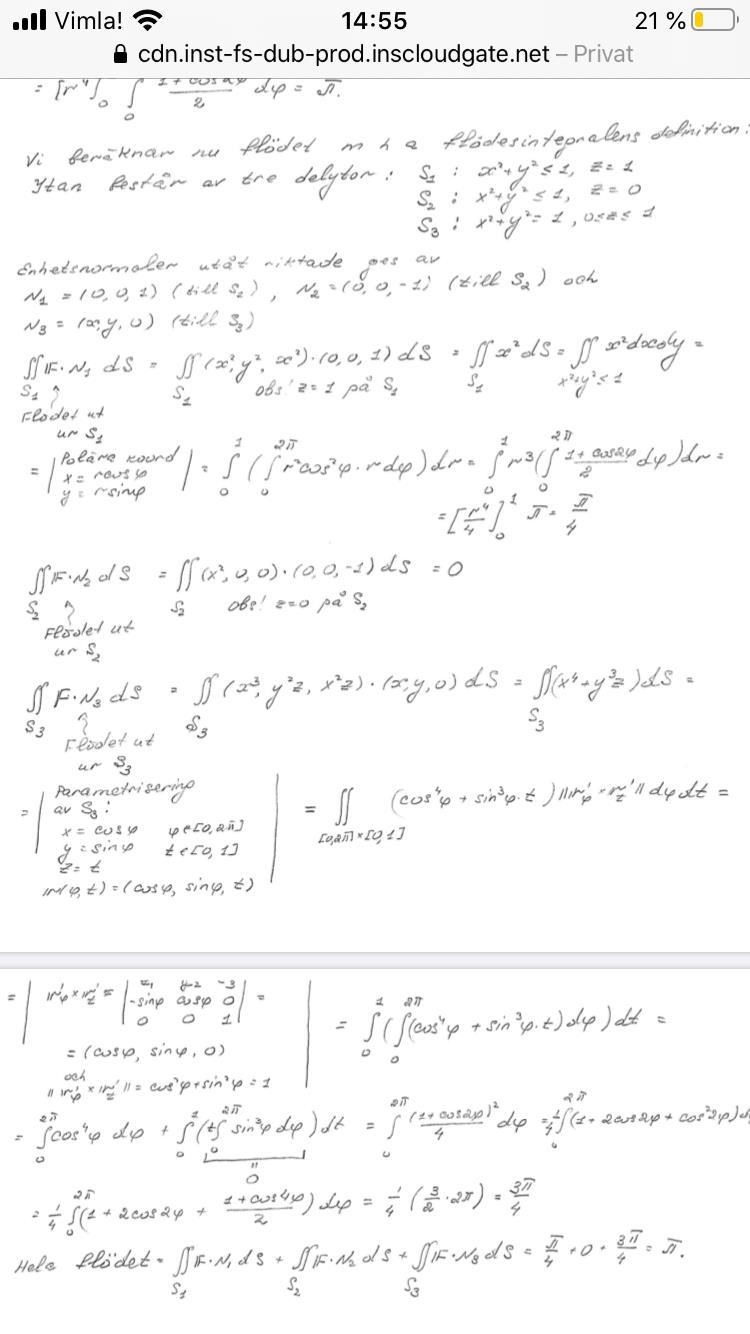 Vimla! 14:55 21 %
cdn.inst-fs-dub-prod.inscloudgate.net – Privat
= [r⁴]₀ ∫₀ (1 + cos2φ)/2 dφ = π.
Vi beräknar nu flödet m h a flödesintegralens definition:
Ytan består av tre delytor: S₁ : x²+y² ≤ 1, z = 1
S₂ : x²+y² ≤ 1, z = 0
S₃ : x²+y² = 1, 0≤z≤1
Enhetsnormaler utåt riktade ges av
N₁ = (0, 0, 1) (till S₂), N₂ = (0, 0, -1) (till S₂) och
N₃ = (x, y, 0) (till S₃)
∬_S₁ F·N₁ dS = ∬_S₁ (x³, y², x²)·(0, 0, 1) dS = ∬_S₁ x² dS = ∬_{x²+y²≤1} x² dxdy =
Flödet ut obs! z = 1 på S₁
ur S₁
= | Polära koord x = rcosφ y = rsinφ | = ∫₀¹ (∫₀^{2π} r²cos²φ · r dφ) dr = ∫₀¹ r³ (∫₀^{2π} (1 + cos2φ)/2 dφ) dr =
= [r⁴/4]₀¹ π = π/4
∬_S₂ F·N₂ dS = ∬_S₂ (x³, 0, 0)·(0, 0, -1) dS = 0
Flödet ut obs! z=0 på S₂
ur S₂
∬_S₃ F·N₃ dS = ∬_S₃ (x³, y²z, x²z)·(x, y, 0) dS = ∬_S₃ (x⁴ + y³z) dS =
Flödet ut
ur S₃
= | Parametrisering av S₃: x = cosφ φ∈[0, 2π] y = sinφ t∈[0, 1] z = t r(φ, t) = (cosφ, sinφ, t) | = ∬_{[0,2π]×[0,1]} (cos⁴φ + sin³φ·t) ||r'φ × r'z|| dφdt =
= | r'φ × r'z = | -sinφ cosφ 0 0 0 1 | = | = ∫₀¹ (∫₀^{2π} (cos⁴φ + sin³φ·t) dφ) dt =
= (cosφ, sinφ, 0)
och
||r'φ × r'z|| = cos²φ + sin²φ = 1
= ∫₀^{2π} cos⁴φ dφ + ∫₀¹ (t ∫₀^{2π} sin³φ dφ) dt = ∫₀^{2π} (1 + cos2φ)²/4 dφ = ¼ ∫₀^{2π} (1 + 2cos2φ + cos²2φ) d
0
= ¼ ∫₀^{2π} (1 + 2cos2φ + (1 + cos4φ)/2) dφ = ¼ (3/2 · 2π) = 3π/4
Hela flödet = ∬_S₁ F·N₁ dS + ∬_S₂ F·N₂ dS + ∬_S₃ F·N₃ dS = π/4 + 0 + 3π/4 = π.